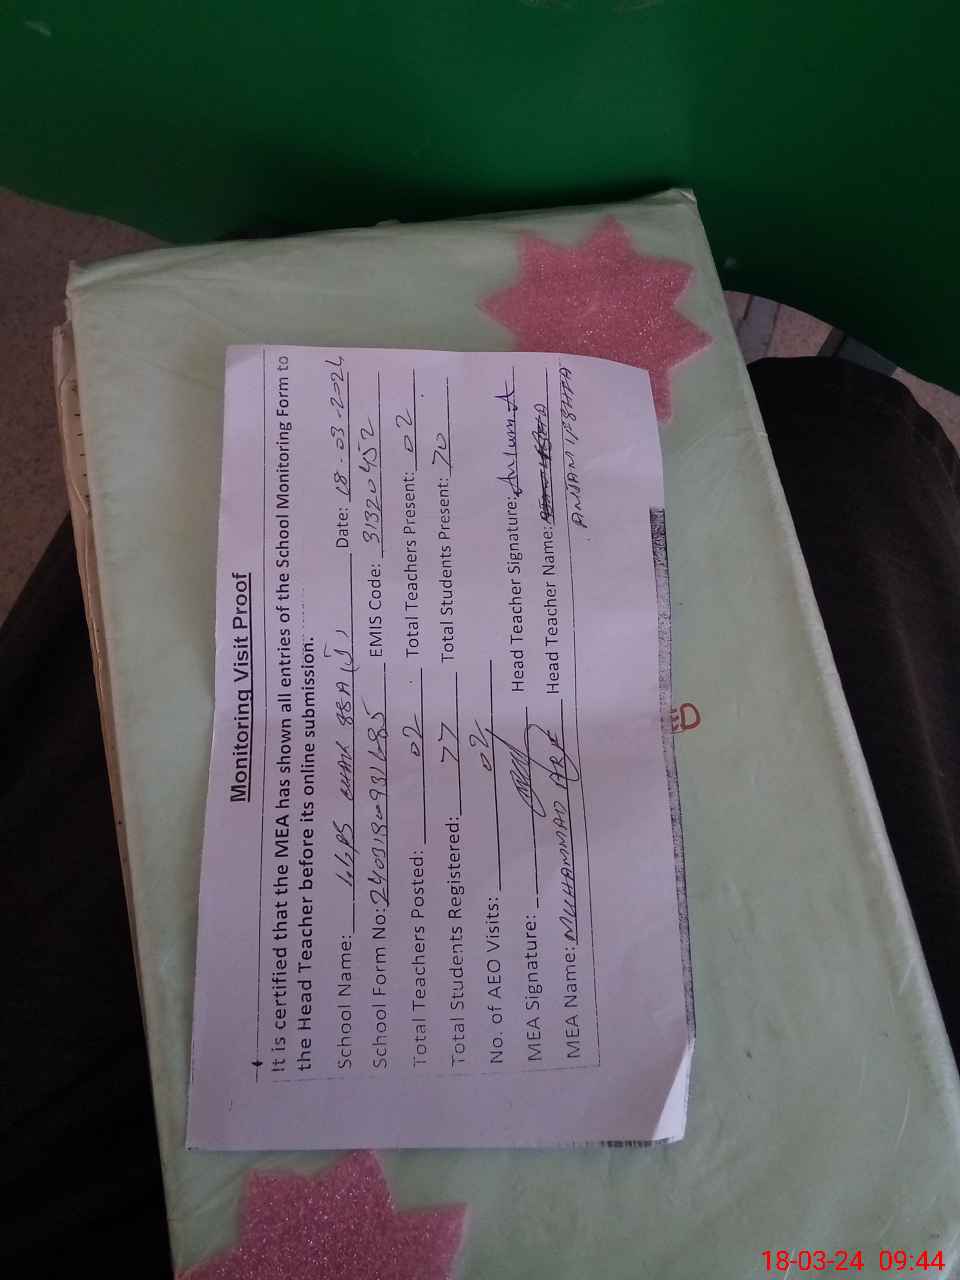 Monitoring Visit Proof
It is certified that the MEA has shown all entries of the School Monitoring Form to
the Head Teacher before its online submission.
School Name: GGPS CHAK 88A Date: 18-03-2024
School Form No: EMIS Code: 31320452
Total Teachers Posted: 02 Total Teachers Present: 02
Total Students Registered: 77 Total Students Present: 70
No. of AEO Visits: 02
MEA Signature: Head Teacher Signature:
MEA Name: MUHAMMAD Head Teacher Name:
18-03-24 09:44